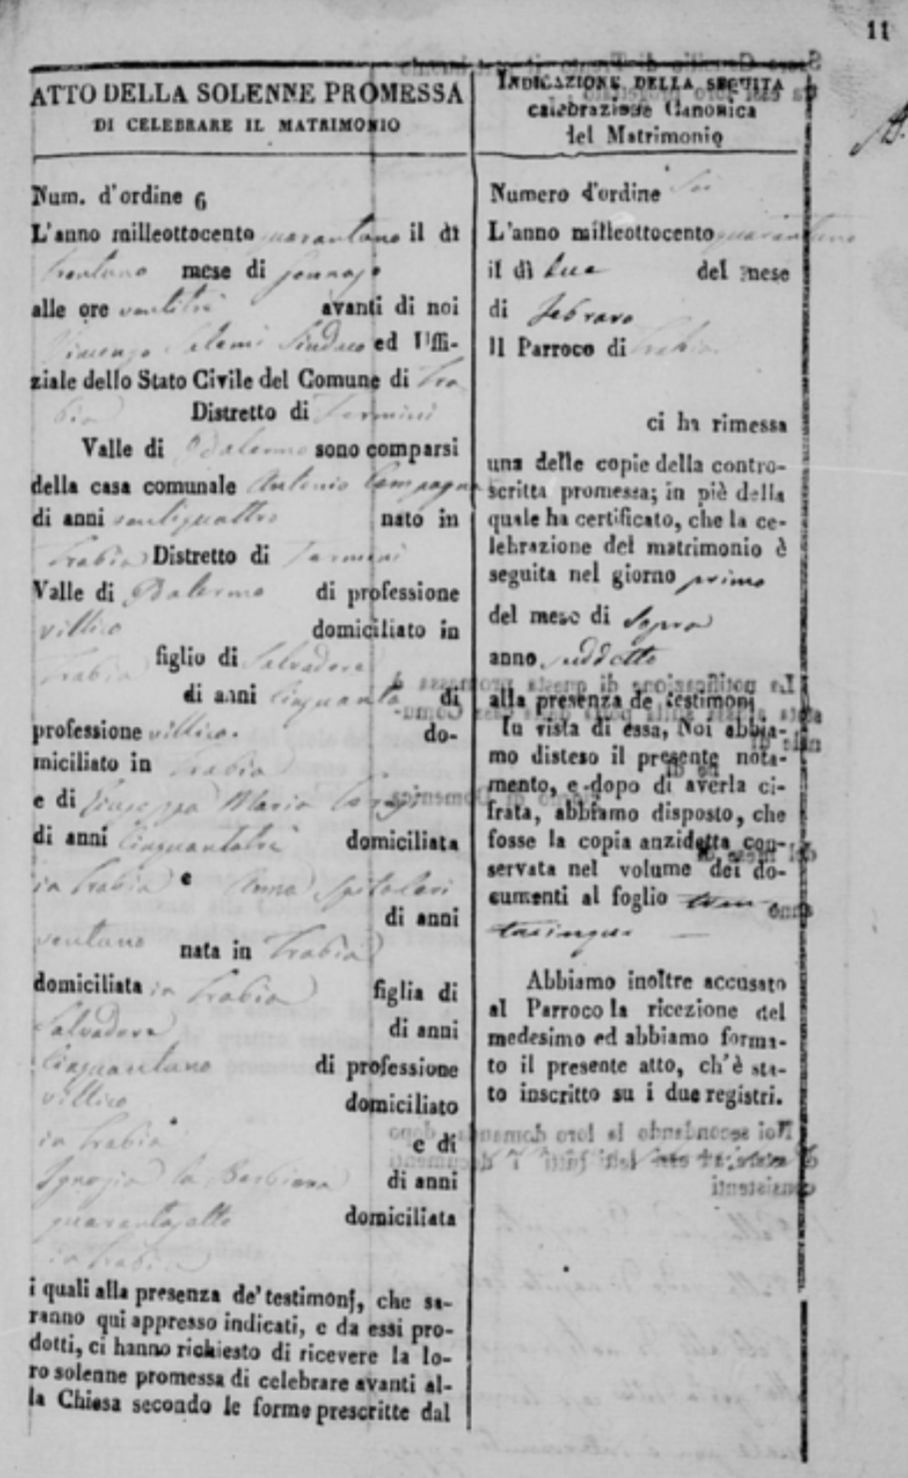 11
ATTO DELLA SOLENNE PROMESSA
DI CELEBRARE IL MATRIMONIO
Num. d'ordine 6
L'anno milleottocento quarantuno il dì
trentuno mese di Gennajo
alle ore ventitrè avanti di noi
Vincenzo Salemi Sindaco ed Uffi-
ziale dello Stato Civile del Comune di Tra
bia Distretto di Termini
Valle di Palermo sono comparsi
della casa comunale Antonio Campagna
di anni ventiquattro nato in
Trabia Distretto di Termini
Valle di Palermo di professione
villico domiciliato in
Trabia figlio di Salvadore
di anni cinquanta di
professione villico do-
miciliato in Trabia
e di Giuseppa Maria
di anni cinquantatrè domiciliata
in Trabia e Anna
di anni
ventuno nata in Trabia
domiciliata in Trabia figlia di
Salvadore di anni
cinquantuno di professione
villico domiciliato
in Trabia e di
Ignazia la Barbiera di anni
quarantasette domiciliata
in Trabia
i quali alla presenza de' testimonj, che sa-
ranno qui appresso indicati, e da essi pro-
dotti, ci hanno richiesto di ricevere la lo-
ro solenne promessa di celebrare avanti al-
la Chiesa secondo le forme prescritte dal
INDICAZIONE DELLA SEGUITA
celebrazione Canonica
del Matrimonio
Numero d'ordine Sei
L'anno milleottocento quarantuno
il dì due del mese
di Febraro
Il Parroco di Trabia
ci ha rimessa
una delle copie della contro-
scritta promessa; in piè della
quale ha certificato, che la ce-
lebrazione del matrimonio è
seguita nel giorno primo
del mese di Sopra
anno suddetto
alla presenza de' testimonj
In vista di essa, Noi abbia-
mo disteso il presente nota-
mento, e dopo di averla ci-
frata, abbiamo disposto, che
fosse la copia anzidetta con-
servata nel volume dei do-
cumenti al foglio tren
tacinque
Abbiamo inoltre accusato
al Parroco la ricezione del
medesimo ed abbiamo forma-
to il presente atto, ch'è sta-
to inscritto su i due registri.